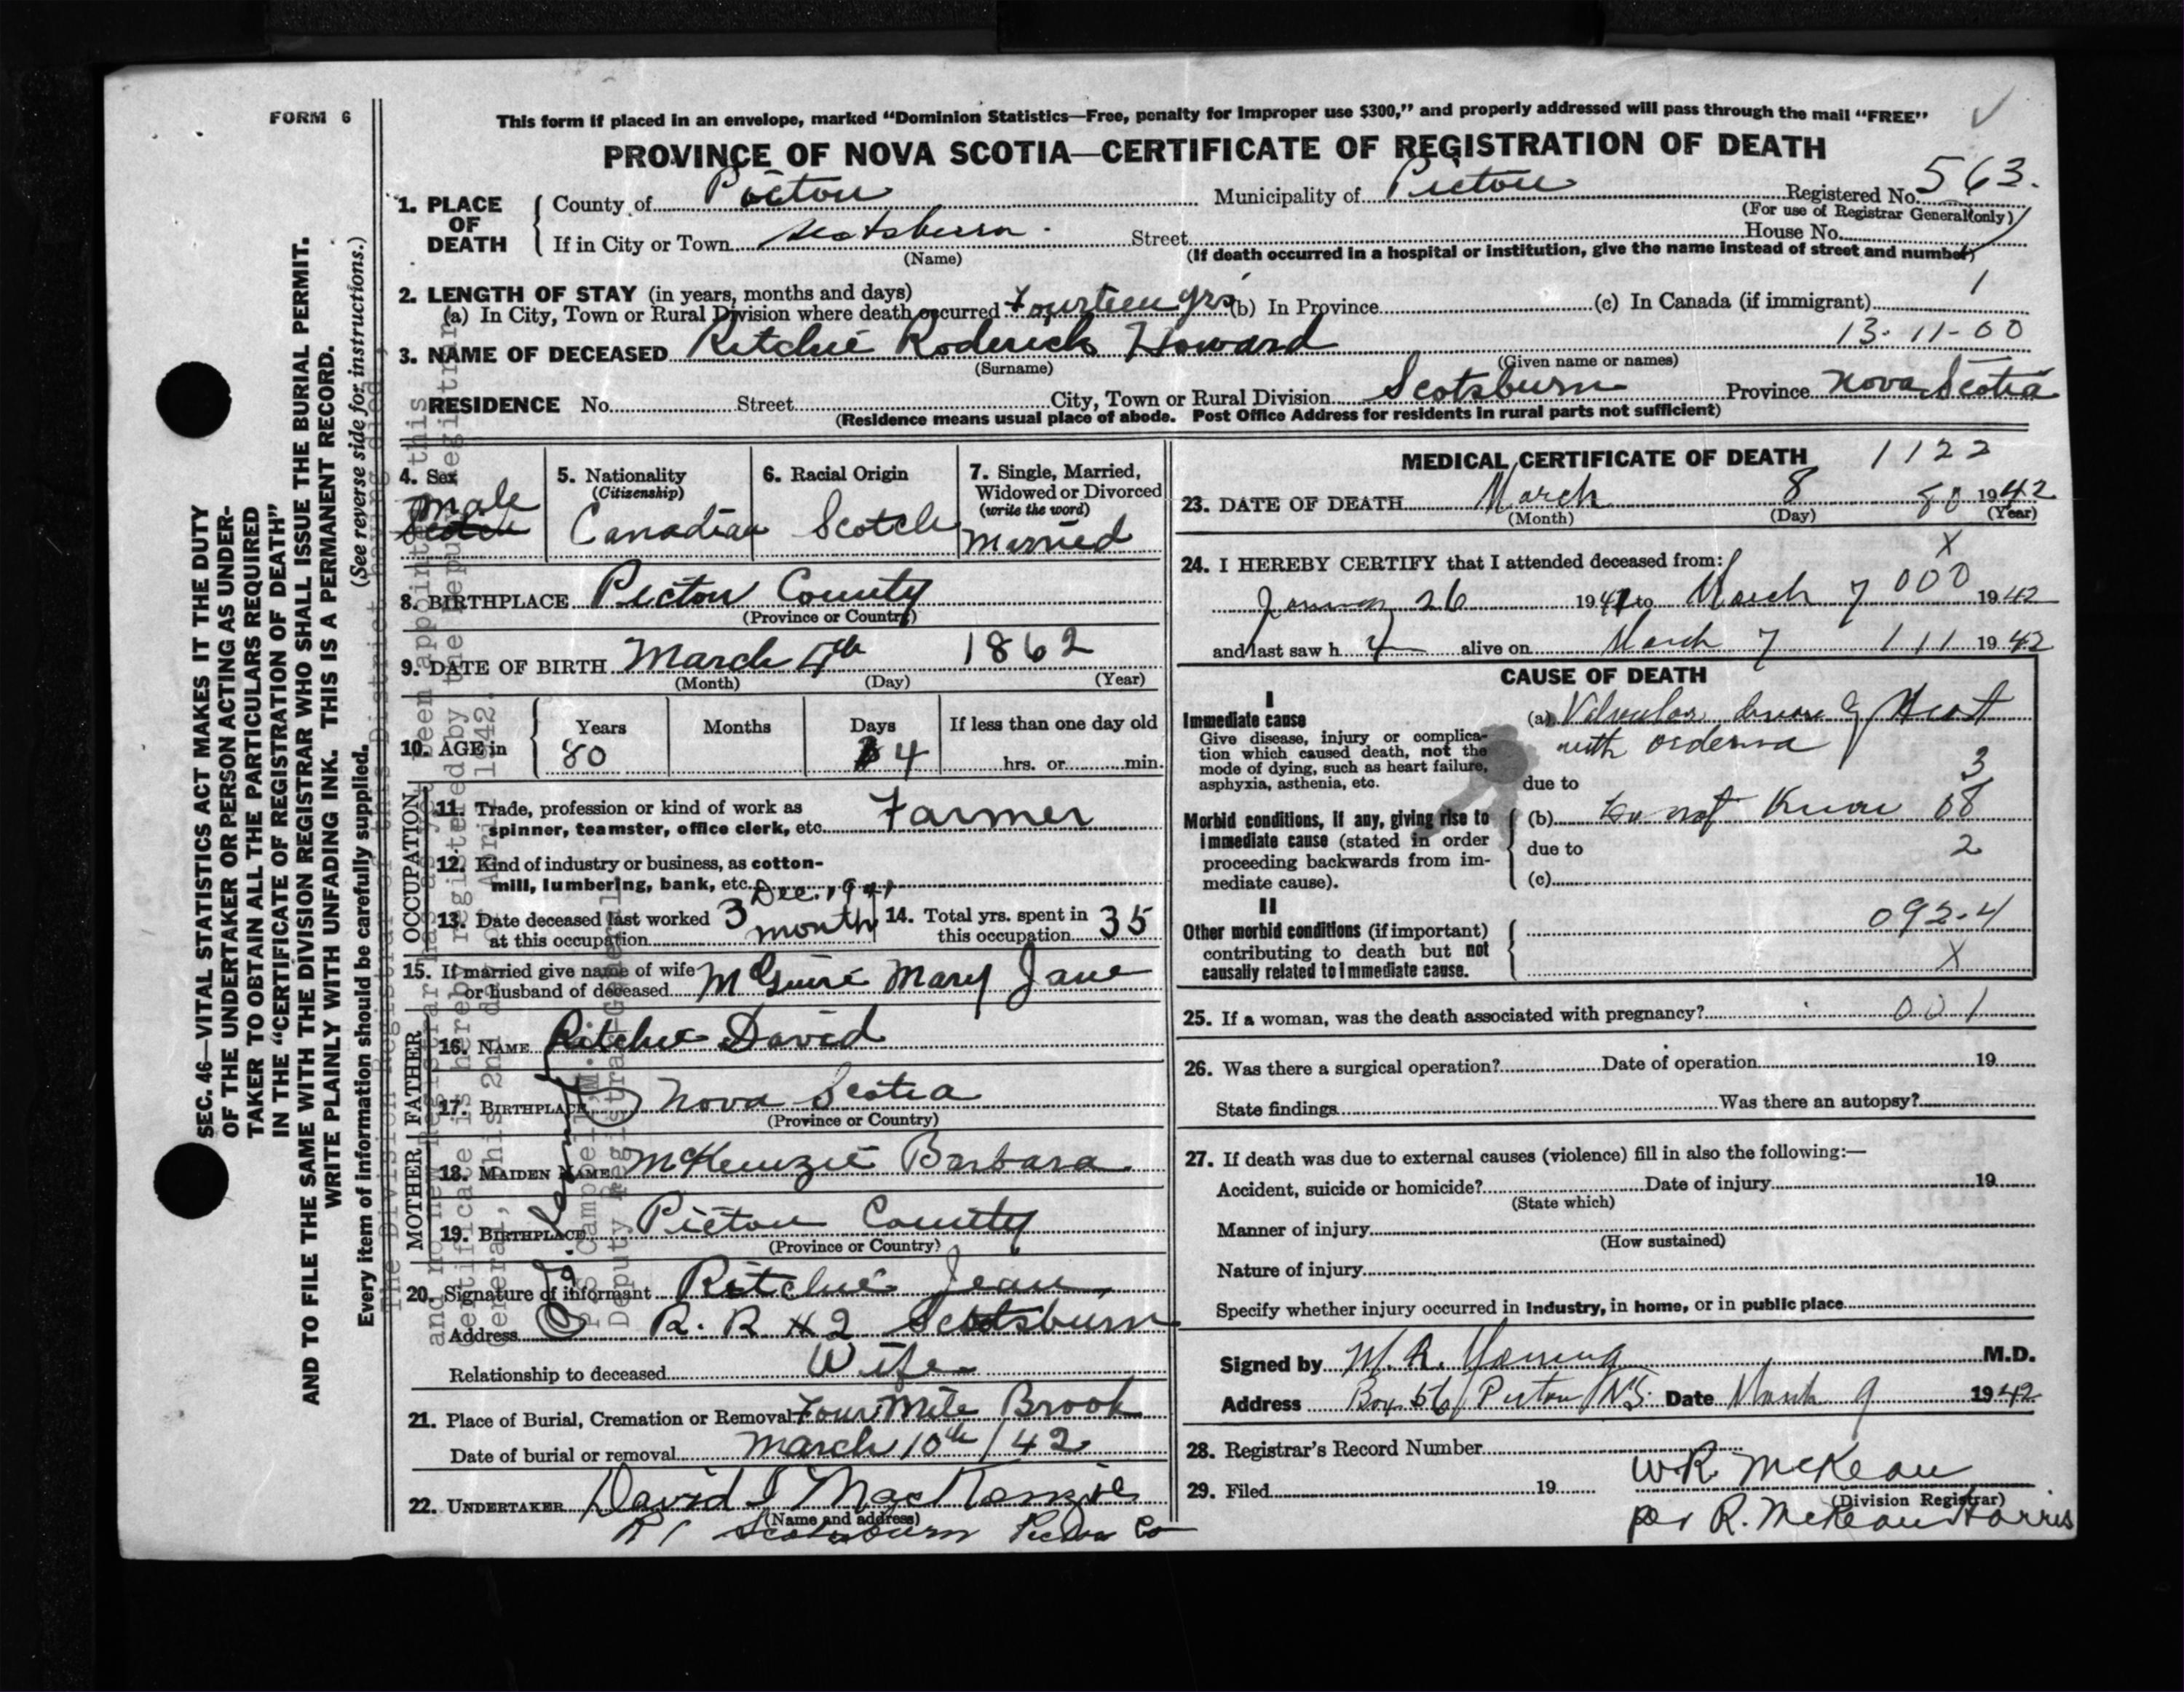 FORM 6
This form if placed in an envelope, marked “Dominion Statistics—Free, penalty for improper use $300,” and properly addressed will pass through the mail “FREE”
PROVINCE OF NOVA SCOTIA—CERTIFICATE OF REGISTRATION OF DEATH
1. PLACE OF DEATH { County of Pictou Municipality of Pictou Registered No. 563.
(For use of Registrar General only)
If in City or Town Scotsburn. Street House No.
(Name) (If death occurred in a hospital or institution, give the name instead of street and number)
2. LENGTH OF STAY (in years, months and days) 1
(a) In City, Town or Rural Division where death occurred Fourteen yrs (b) In Province (c) In Canada (if immigrant)
3. NAME OF DECEASED Ritchie Roderick Howard 13-11-00
(Surname) (Given name or names)
RESIDENCE No. Street City, Town or Rural Division Scotsburn Province Nova Scotia
(Residence means usual place of abode. Post Office Address for residents in rural parts not sufficient)
4. Sex Male Scotch
5. Nationality (Citizenship) Canadian
6. Racial Origin Scotch
7. Single, Married, Widowed or Divorced (write the word) Married
8. BIRTHPLACE Pictou County
(Province or Country)
9. DATE OF BIRTH March 4th 1862
(Month) (Day) (Year)
10. AGE in { Years Months Days If less than one day old
80 4 hrs. or min.
OCCUPATION
11. Trade, profession or kind of work as spinner, teamster, office clerk, etc. Farmer
12. Kind of industry or business, as cotton-mill, lumbering, bank, etc.
13. Date deceased last worked at this occupation Dec. 1941 3 month
14. Total yrs. spent in this occupation 35
15. If married give name of wife or husband of deceased McGuire Mary Jane
FATHER
16. NAME Ritchie David
17. BIRTHPLACE Nova Scotia
(Province or Country)
MOTHER
18. MAIDEN NAME McKenzie Barbara
19. BIRTHPLACE Pictou County
(Province or Country)
20. Signature of informant Ritchie Jean
Address R. R #2 Scotsburn
Relationship to deceased Wife
21. Place of Burial, Cremation or Removal Four Mile Brook
Date of burial or removal March 10th/42
22. UNDERTAKER David I MacKenzie
(Name and address)
R 1 Scotsburn Pictou Co
MEDICAL CERTIFICATE OF DEATH 1122
23. DATE OF DEATH March 8 80 1942
(Month) (Day) (Year)
X
24. I HEREBY CERTIFY that I attended deceased from:
January 26 1941 to March 7 000 1942
and last saw h alive on March 7 111 1942
CAUSE OF DEATH
I
Immediate cause
Give disease, injury or complication which caused death, not the mode of dying, such as heart failure, asphyxia, asthenia, etc.
(a) Valvular disease of Heart
with oedema
3
due to
Morbid conditions, if any, giving rise to immediate cause (stated in order proceeding backwards from immediate cause).
(b) Do not Know 08
due to 2
(c)
II
Other morbid conditions (if important) contributing to death but not causally related to immediate cause.
092-4
X
25. If a woman, was the death associated with pregnancy? 001
26. Was there a surgical operation? Date of operation 19
State findings Was there an autopsy?
27. If death was due to external causes (violence) fill in also the following:—
Accident, suicide or homicide? Date of injury 19
(State which)
Manner of injury
(How sustained)
Nature of injury
Specify whether injury occurred in industry, in home, or in public place
Signed by M. R. Young M.D.
Address Box 56 Pictou N.S. Date March 9 1942
28. Registrar's Record Number
29. Filed 19 W.R. McKean
(Division Registrar)
per R. McKean Harris
SEC. 46—VITAL STATISTICS ACT MAKES IT THE DUTY
OF THE UNDERTAKER OR PERSON ACTING AS UNDER-
TAKER TO OBTAIN ALL THE PARTICULARS REQUIRED
IN THE “CERTIFICATE OF REGISTRATION OF DEATH”
AND TO FILE THE SAME WITH THE DIVISION REGISTRAR WHO SHALL ISSUE THE BURIAL PERMIT.
WRITE PLAINLY WITH UNFADING INK. THIS IS A PERMANENT RECORD.
Every item of information should be carefully supplied. (See reverse side for instructions.)
The Division Registrar of this District having died
and no new Registrar has as yet been appointed this
certificate is hereby registered by the Deputy Registrar
General, this 2nd day of April 1942.
Campbell
Deputy Registrar General